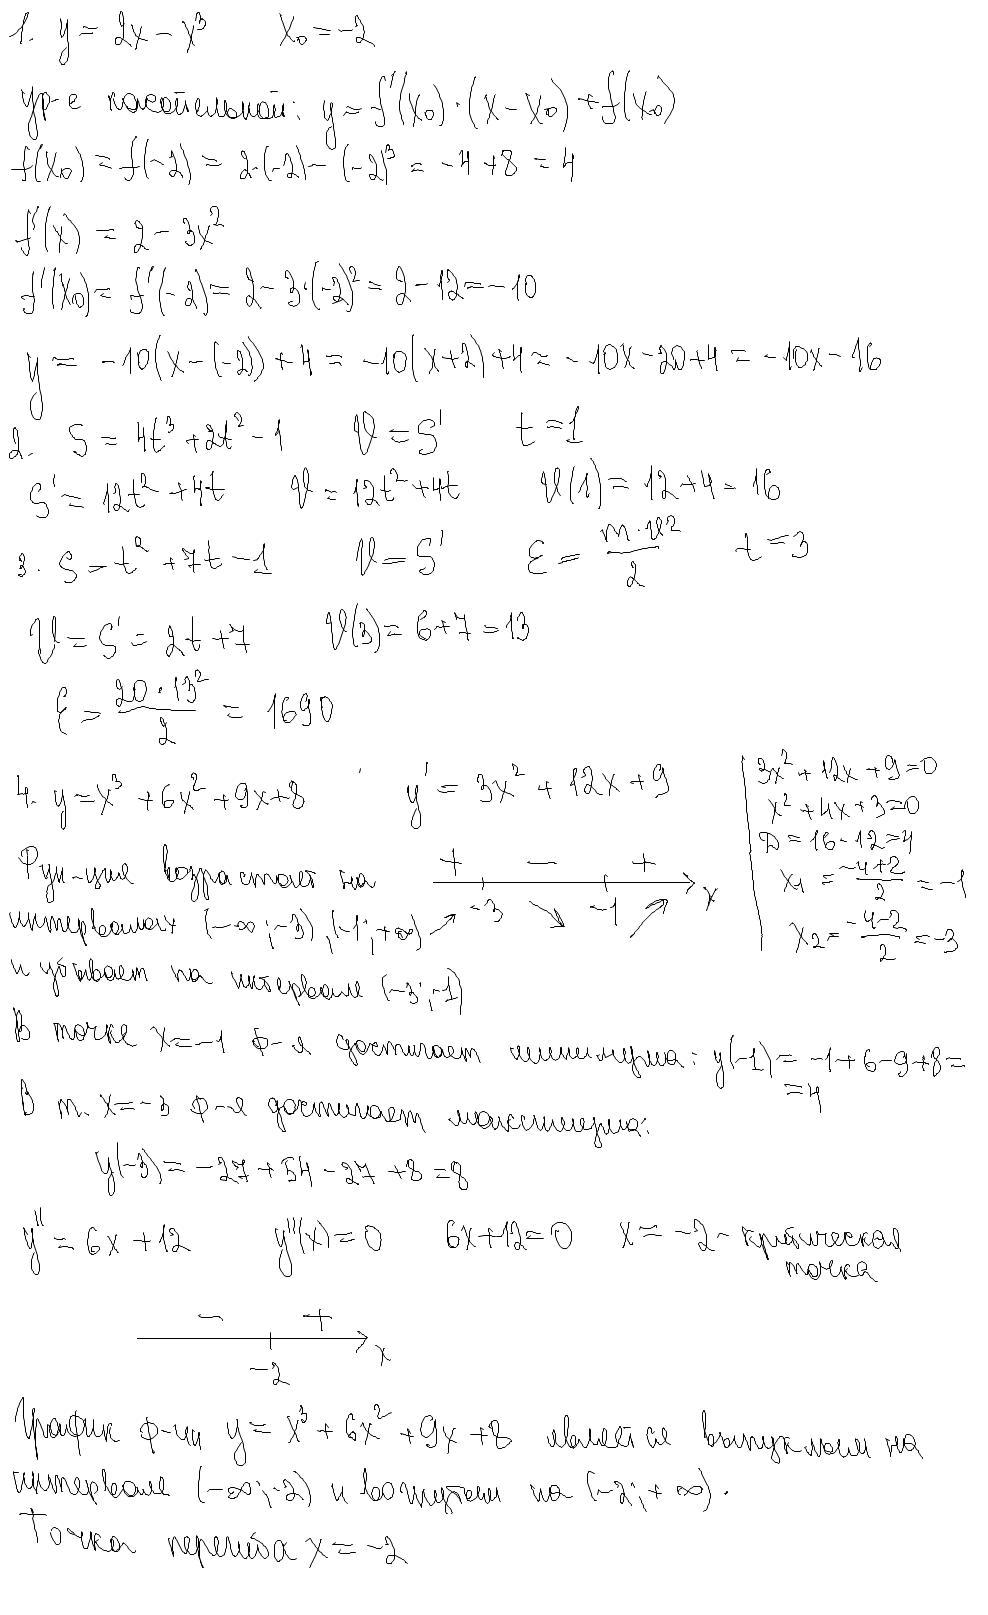 1. y = 2x - x³    x₀ = -2
ур-е касательной: y = f'(x₀)·(x - x₀) + f(x₀)
f(x₀) = f(-2) = 2·(-2) - (-2)³ = -4 + 8 = 4
f'(x) = 2 - 3x²
f'(x₀) = f'(-2) = 2 - 3·(-2)² = 2 - 12 = -10
y = -10(x - (-2)) + 4 = -10(x + 2) + 4 = -10x - 20 + 4 = -10x - 16
2. S = 4t³ + 2t² - 1    V = S'    t = 1
S' = 12t² + 4t    V = 12t² + 4t    V(1) = 12 + 4 = 16
3. S = t² + 7t - 1    V = S'    E = m·V²/2    t = 3
V = S' = 2t + 7    V(3) = 6 + 7 = 13
E = 20·13²/2 = 1690
4. y = x³ + 6x² + 9x + 8    y' = 3x² + 12x + 9
3x² + 12x + 9 = 0
x² + 4x + 3 = 0
D = 16 - 12 = 4
x₁ = (-4+2)/2 = -1
x₂ = (-4-2)/2 = -3
+ - +
-3 -1 x
Фун-ция возрастает на
интервалах (-∞; -3), (-1; +∞)
и убывает на интервале (-3; -1)
В точке x = -1 ф-я достигает минимума: y(-1) = -1 + 6 - 9 + 8 =
= 4
В т. x = -3 ф-я достигает максимума:
y(-3) = -27 + 54 - 27 + 8 = 8
y'' = 6x + 12    y''(x) = 0    6x + 12 = 0    x = -2 - критическая
точка
- +
-2 x
График ф-ии y = x³ + 6x² + 9x + 8 является выпуклым на
интервале (-∞; -2) и вогнутым на (-2; +∞).
Точка перегиба x = -2